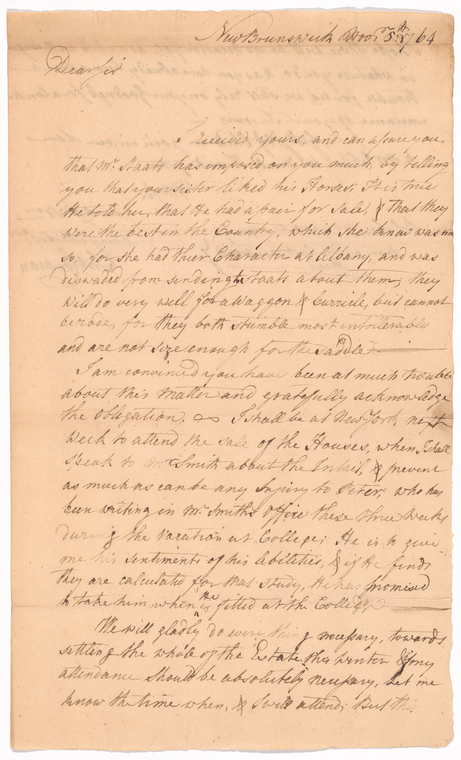 New Brunswick Nov.r 5th 1764
Dear Sir
I receiv'd yours, and can assure you,
that Mr. Staats has imposed on you much, by telling
you that your sister liked his Horses; It is true
He told her, that He had a pair for Sale, & that they
were the best in the Country, which she knew was not
so, for she had their Character at Albany, and was
diswaded from sending to Staats about them; they
will do very well for a Waggon & Curricle, but cannot
be rode, for they both stumble most intollerable
and are not size enough for the Saddle
I am convinced you have been at much trouble
about this Matter and gratefully acknowledge
the Obligation. I shall be at New York next
Week to attend the sale of the Houses, when I shall
speak to Mr. Smith about the Intail, & prevent
as much as can be any Injury to Peter, who has
been writing in Mr. Smiths Office these three Weeks
during the Vacation at College; He is to give
me his Sentiments of his Abilities, & if He finds
they are calculated for that Study, He has promised
to take him when the is fitted at the College
We will gladly do every thing necessary, towards
settling the whole of the Estate this Winter & if my
attendance should be absolutely necessary, let me
know the time when, & I will attend; But this